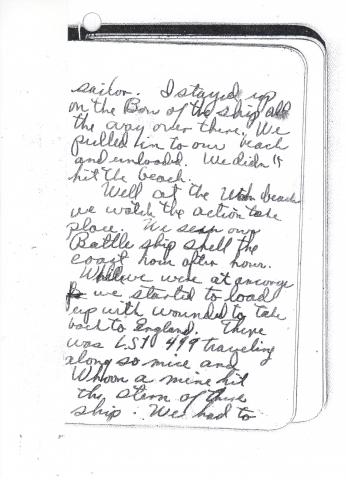 sailor. I stayed up
on the Bow of the ship all
the way over there. We
pulled in to our beach
and unloded. We didn't
hit the beach.
Well at the Utah beach
we watch the action take
place. We seen our
Battle ship shell the
coast hour after hour.
While we were at ancorge
we started to load
up with wounded to take
back to England. There
was LST 499 traveling
along so nice and
Whoom a mine hit
the stern of there
ship. We had to